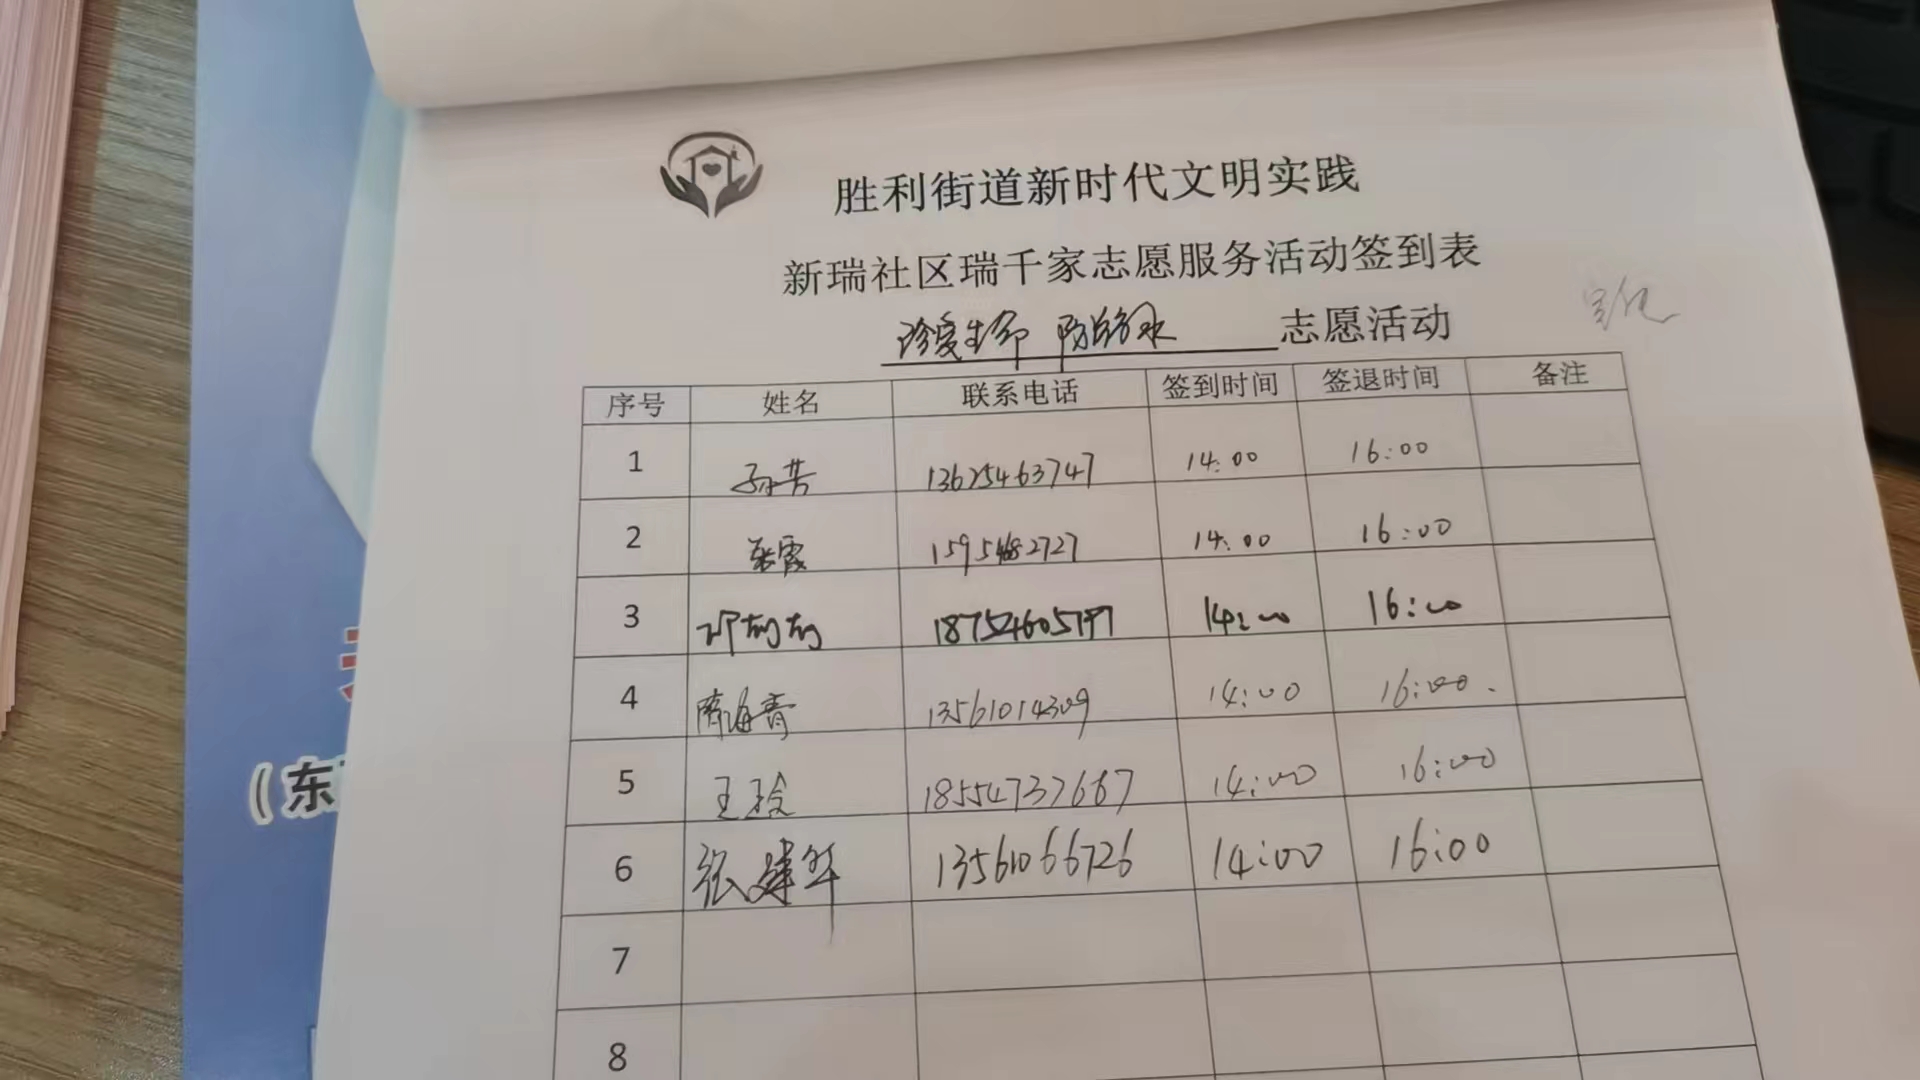 胜利街道新时代文明实践
新瑞社区瑞千家志愿服务活动签到表
珍爱生命 防溺水 志愿活动
序号 姓名 联系电话 签到时间 签退时间 备注
1 孙芳 13625463747 14:00 16:00
2 张霞 15954682727 14:00 16:00
3 18754605797 14:00 16:00
4 隋海青 13561014309 14:00 16:00.
5 王玲 18554737667 14:00 16:00
6 张建华 13561066726 14:00 16:00
7
8
(东